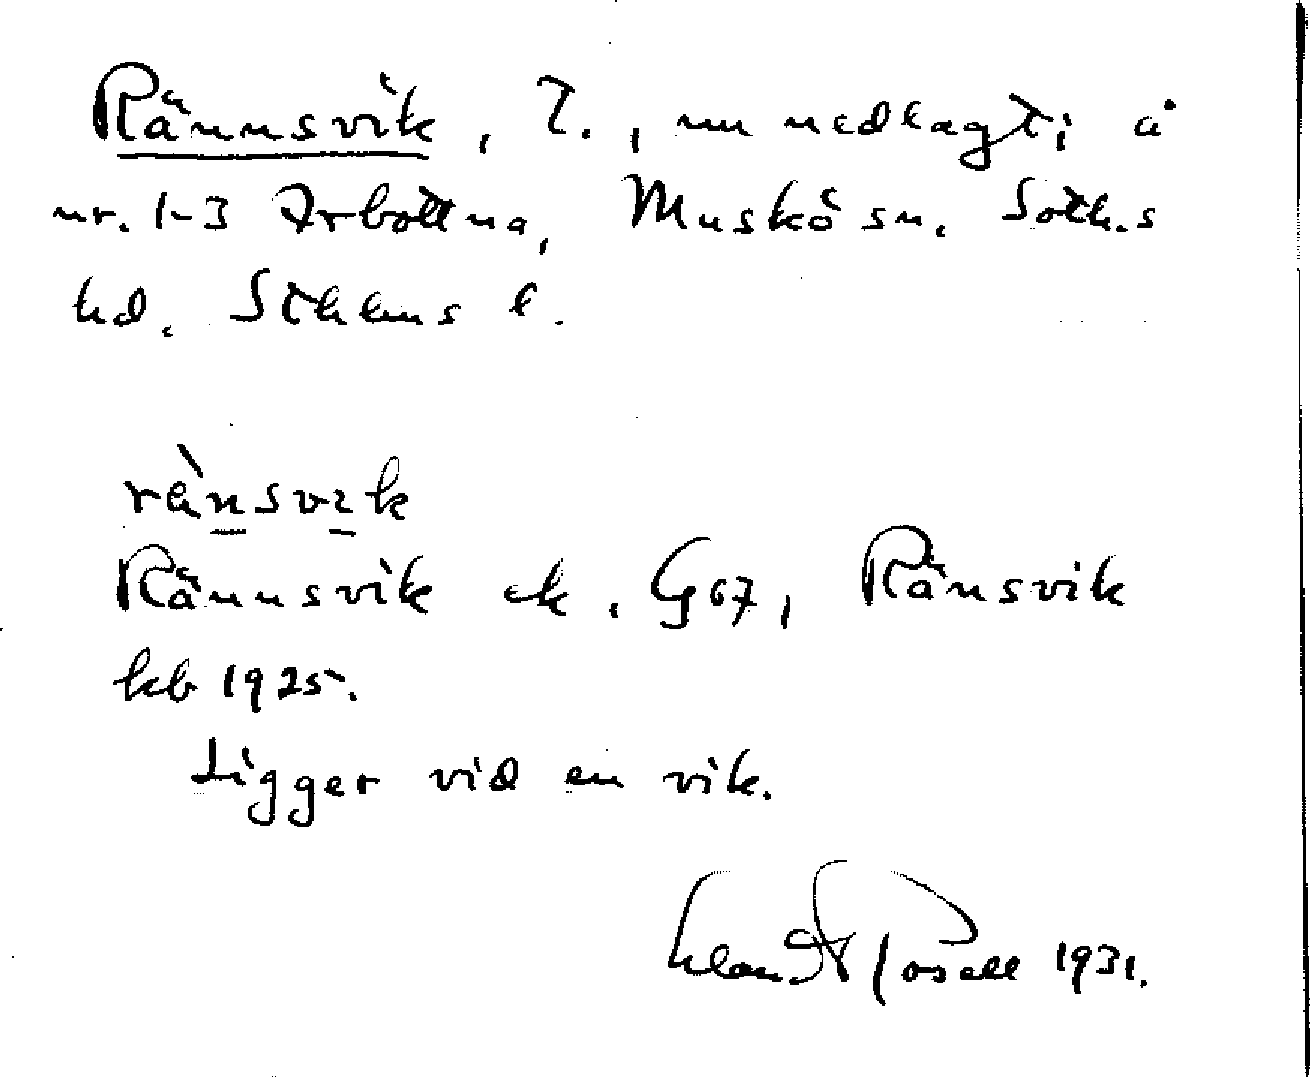 Rännsvik, T., nu nedlagt; å
nr. 1-3 Arbottna, Muskö sn. Soth.s
hd. Sthlms l.
rä̀nsvik
Rännsvik ek. G67, Ränsvik
kb 1925.
Ligger vid en vik.
1931.